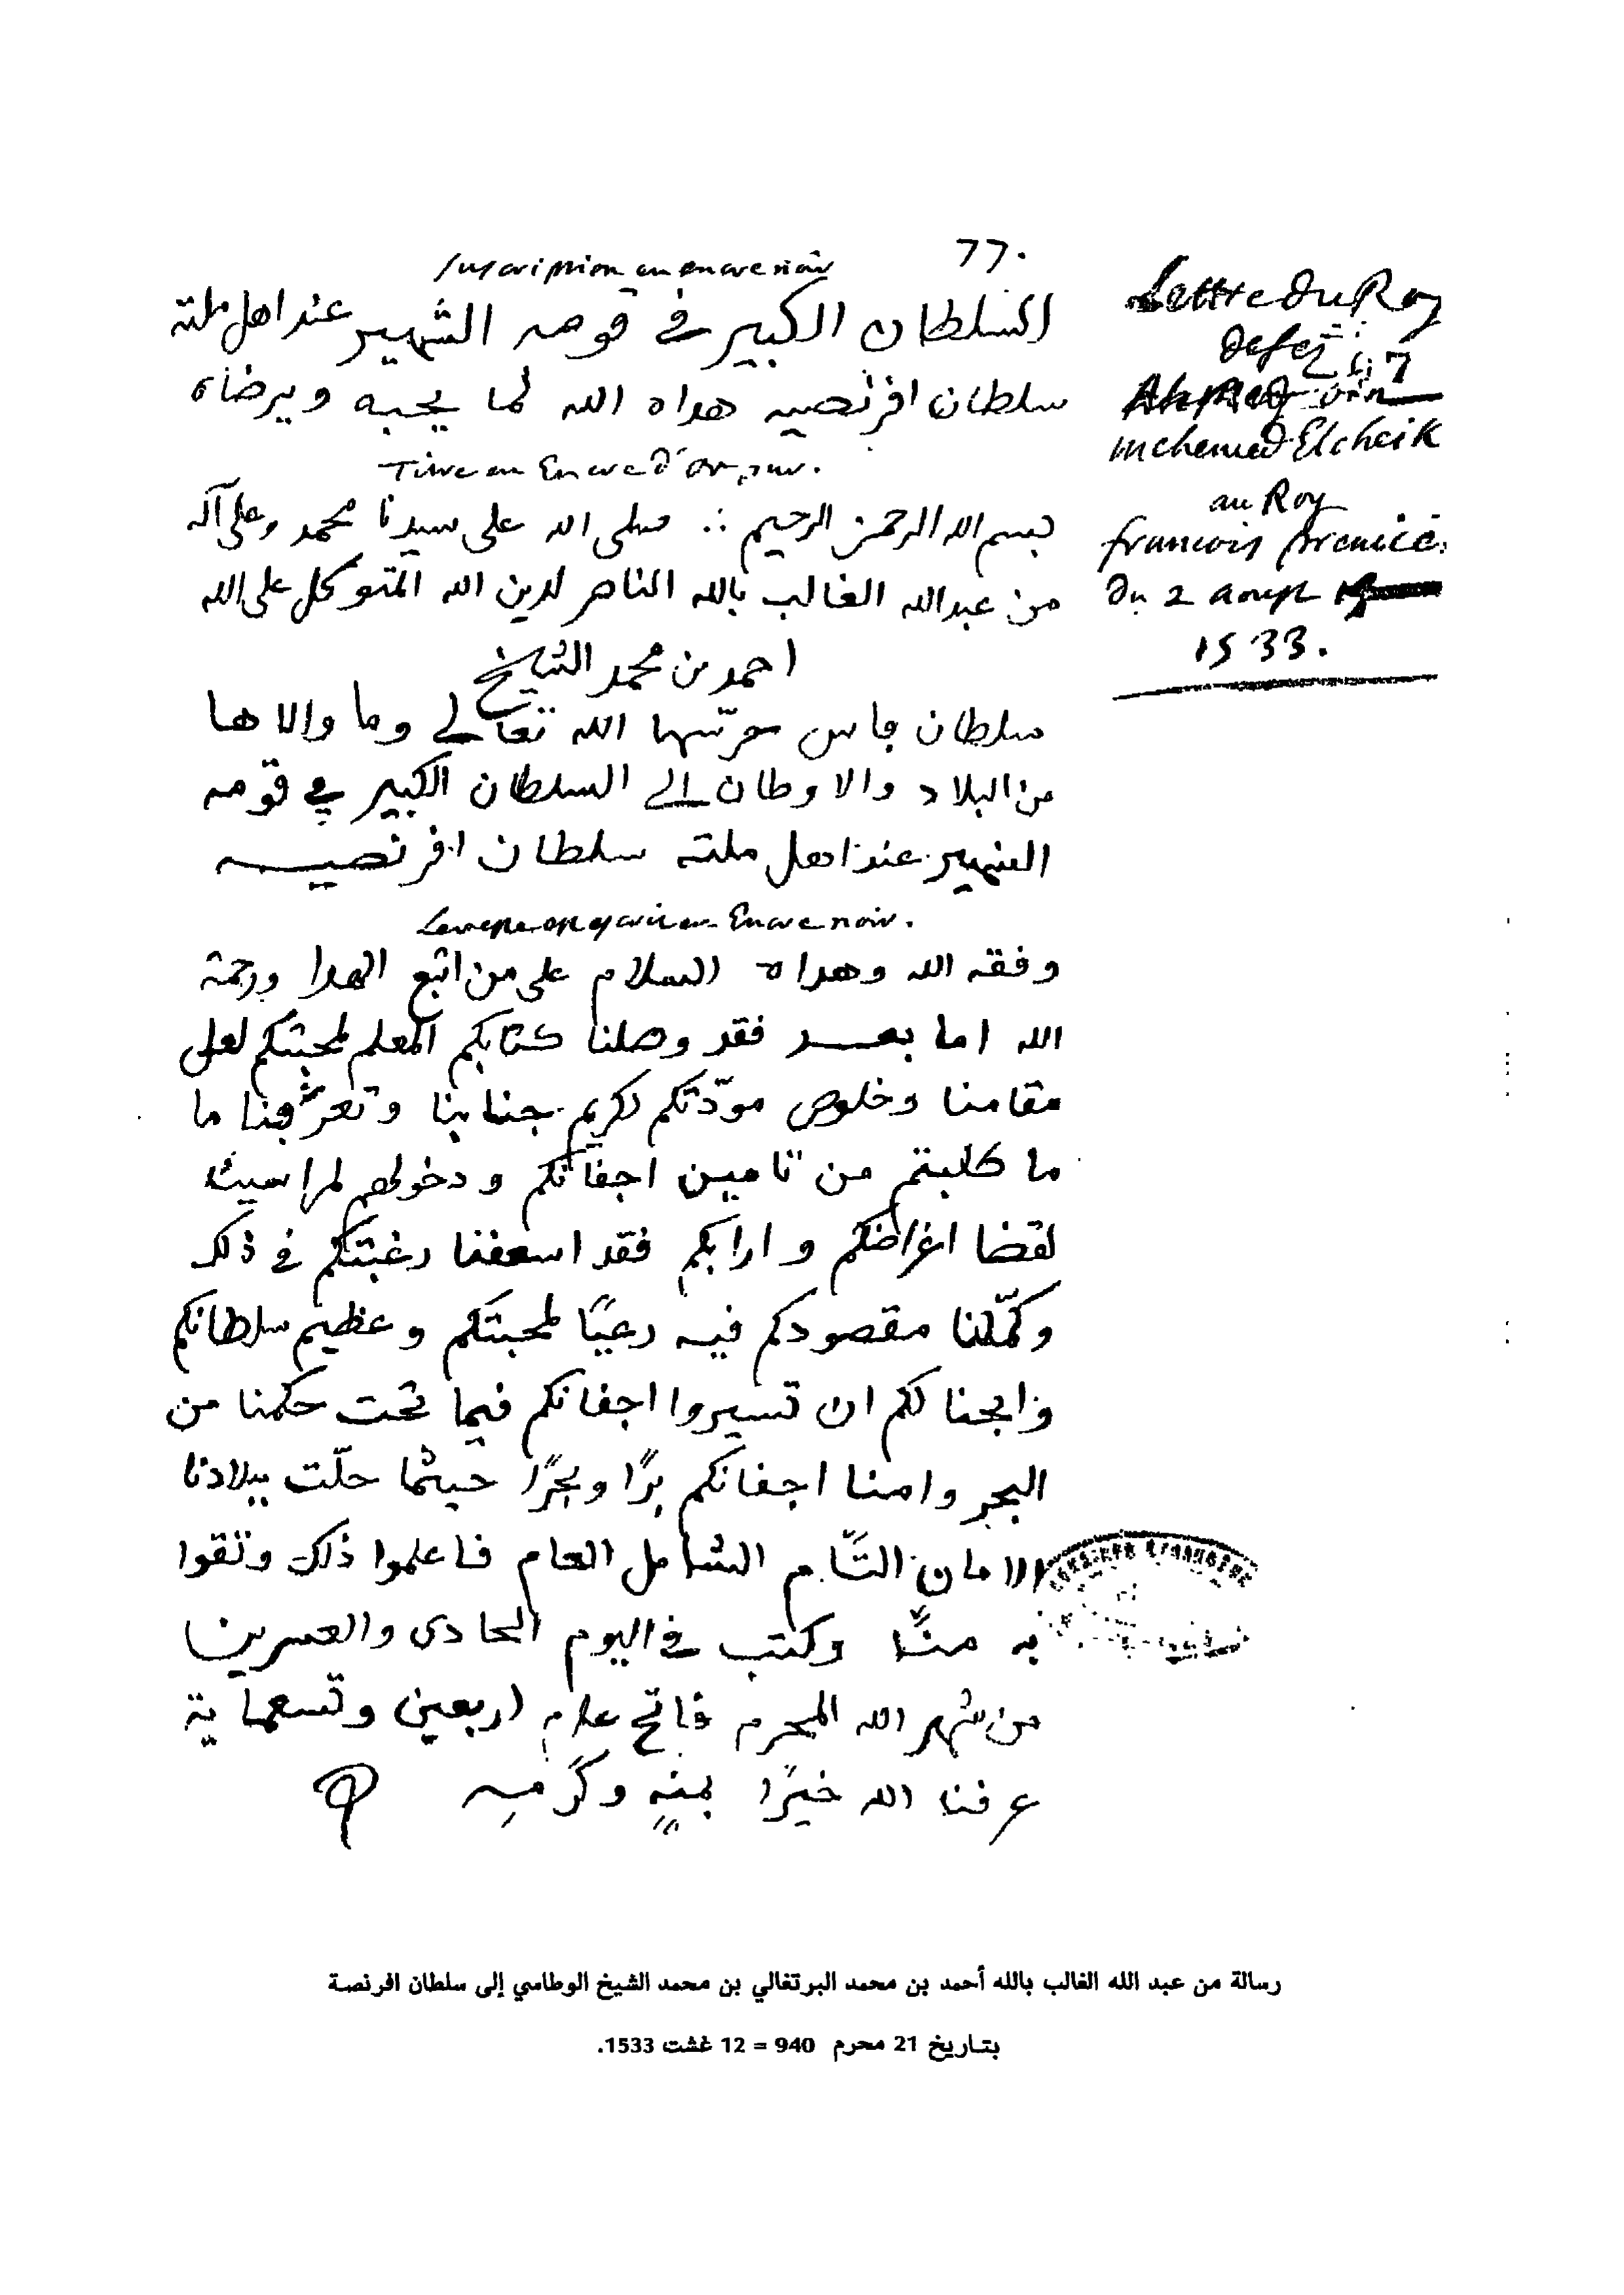 77.
Suscription en encre noir
السلطان الكبير في قومه الشهير عند اهل ملته
سلطان افرنصيه هداه الله لما يحبه ويرضاه
Titre en Encre d'or pur.
بسم الله الرحمن الرحيم ∴ صلى الله على سيدنا محمد وعلى آله
من عبد الله الغالب بالله الناصر لدين الله المتوكل على الله
احمد بن محمد الشيخ
سلطان فاس حرسها الله تعالى وما والاها
من البلاد والاوطان الى السلطان الكبير في قومه
الشهير عند اهل ملته سلطان افرنصيه
Le reste est écrit en Encre noir.
وفقه الله وهداه السلام على من اتبع الهدا ورحمة
الله اما بعد فقد وصلنا كتابكم المعلم لمحبتكم لعلى
مقامنا وخلوص مودّتكم لكريم جنابنا وتعرفنا ما
ما طلبتم من تامين اجفانكم ودخولهم لمراسينا
لقضا اغراضكم وارابكم فقد اسعفنا رغبتكم في ذلك
وكمّلنا مقصودكم فيه رعيًا لمحبتكم وعظيم سلطانكم
وابحنا لكم ان تسيروا اجفانكم فيما تحت حكمنا من
البحر وامنا اجفانكم برًا وبحرًا حيثما حلّت ببلادنا
الامان التّام الشامل العام فاعلموا ذلك وثقوا
به منّا وكتب في اليوم الحادى والعسرين
من شهر الله المحرم فاتح عام اربعين وتسعماية
عرفنا الله خيرًا بمنهِ وكرمهِ
Lettre du Roy
de fez
Ahmed
mehemed Elcheik
au Roy
francois premier
du 2 aoust
1533.
رسالة من عبد الله الغالب بالله أحمد بن محمد البرتغالي بن محمد الشيخ الوطاسي إلى سلطان افرنصة
بتاريخ 21 محرم 940 = 12 غشت 1533.